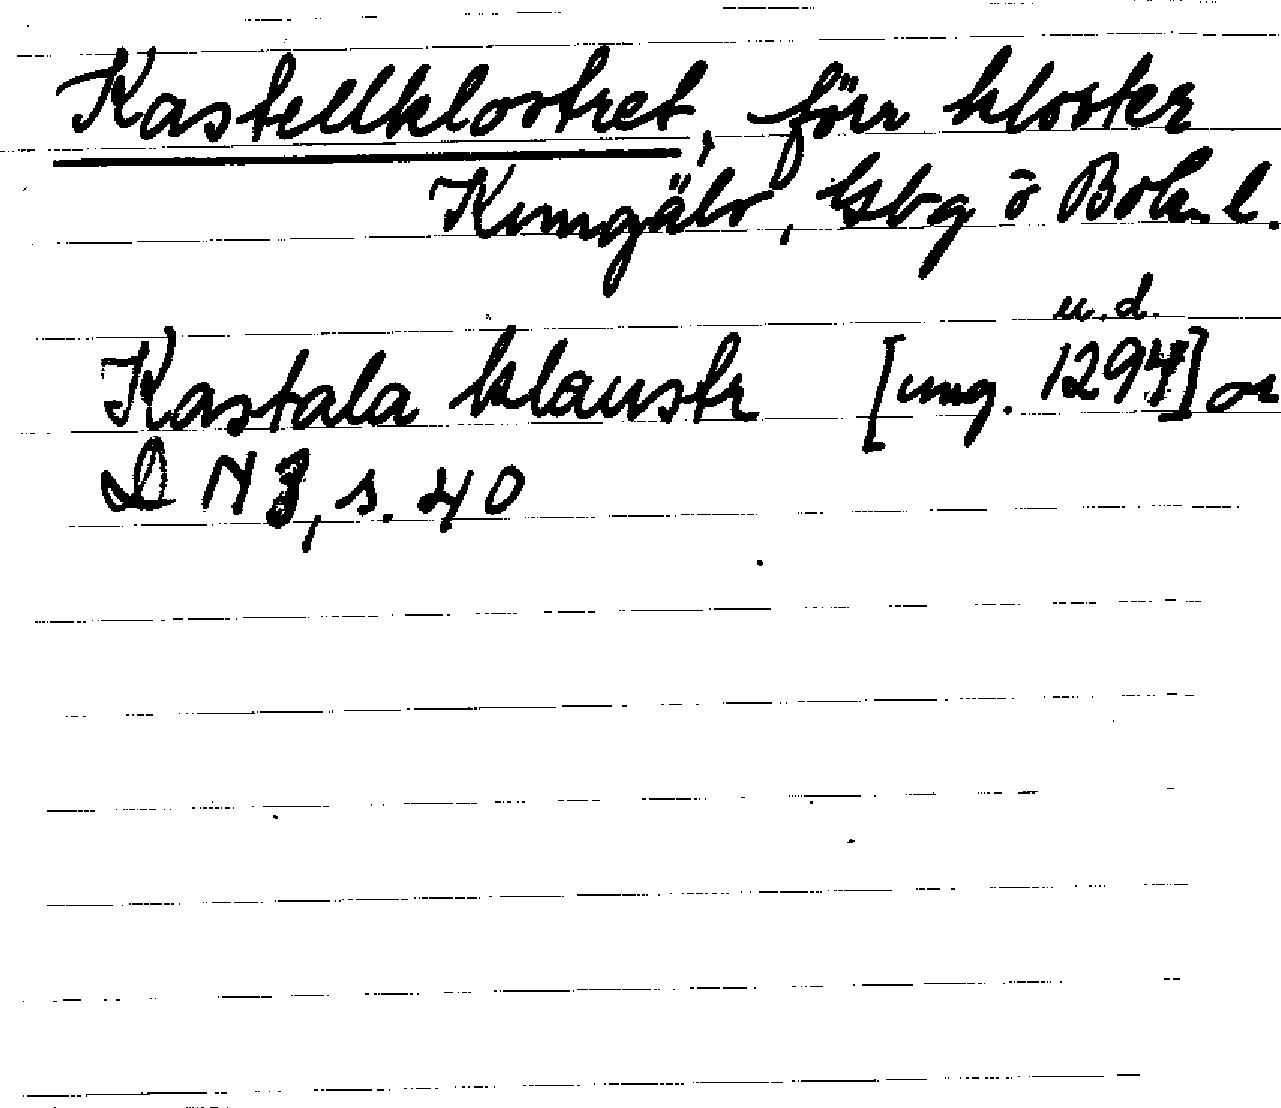 Kastellklostret, förr kloster
Kungälv, Gbg o Boh. l.
u.d.
Kastala klaustr [omg. 1294] or
D N 3, s. 40